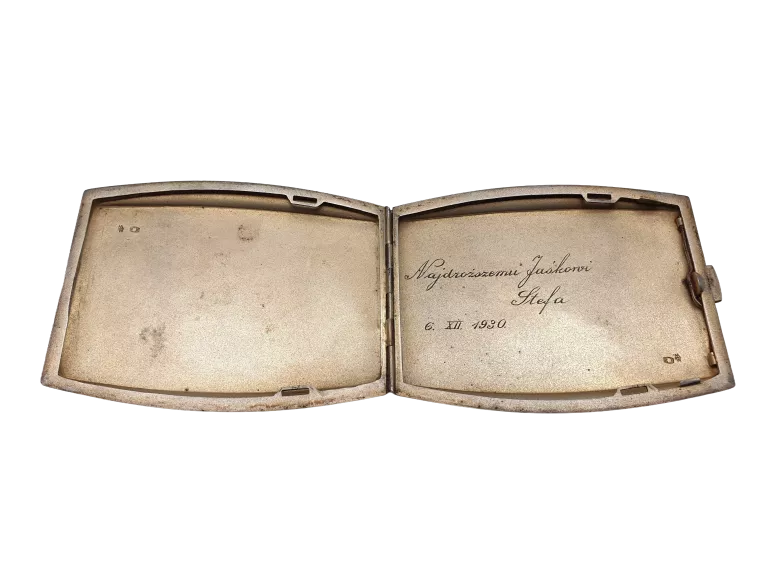 Najdroższemu Jaśkowi
Stefa
6. XII. 1930.